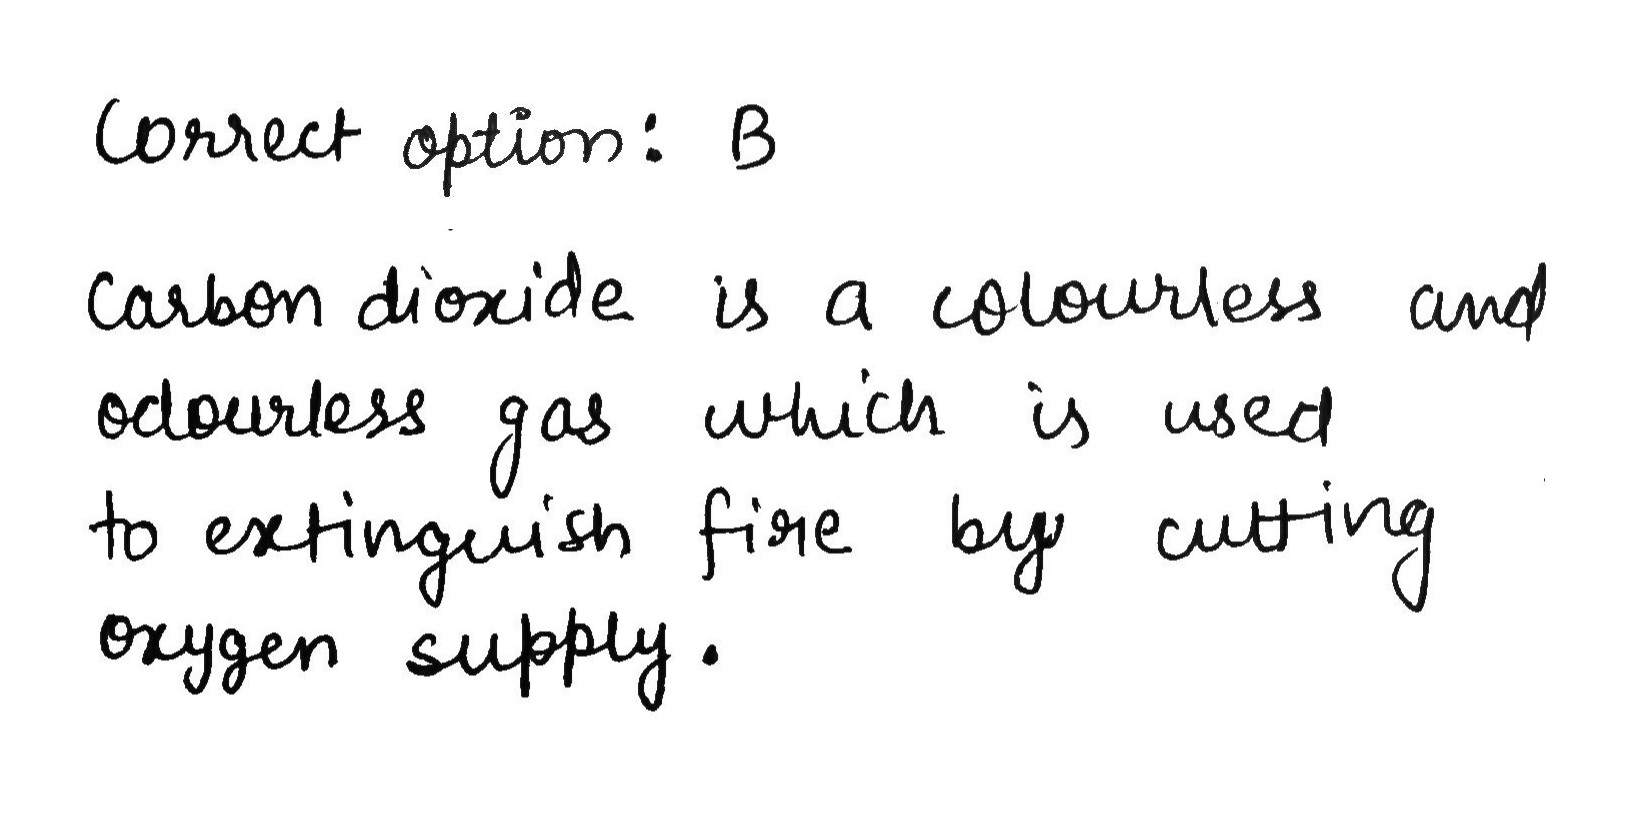 Correct option: B
Carbon dioxide is a colourless and
odourless gas which is used
to extinguish fire by cutting
oxygen supply.